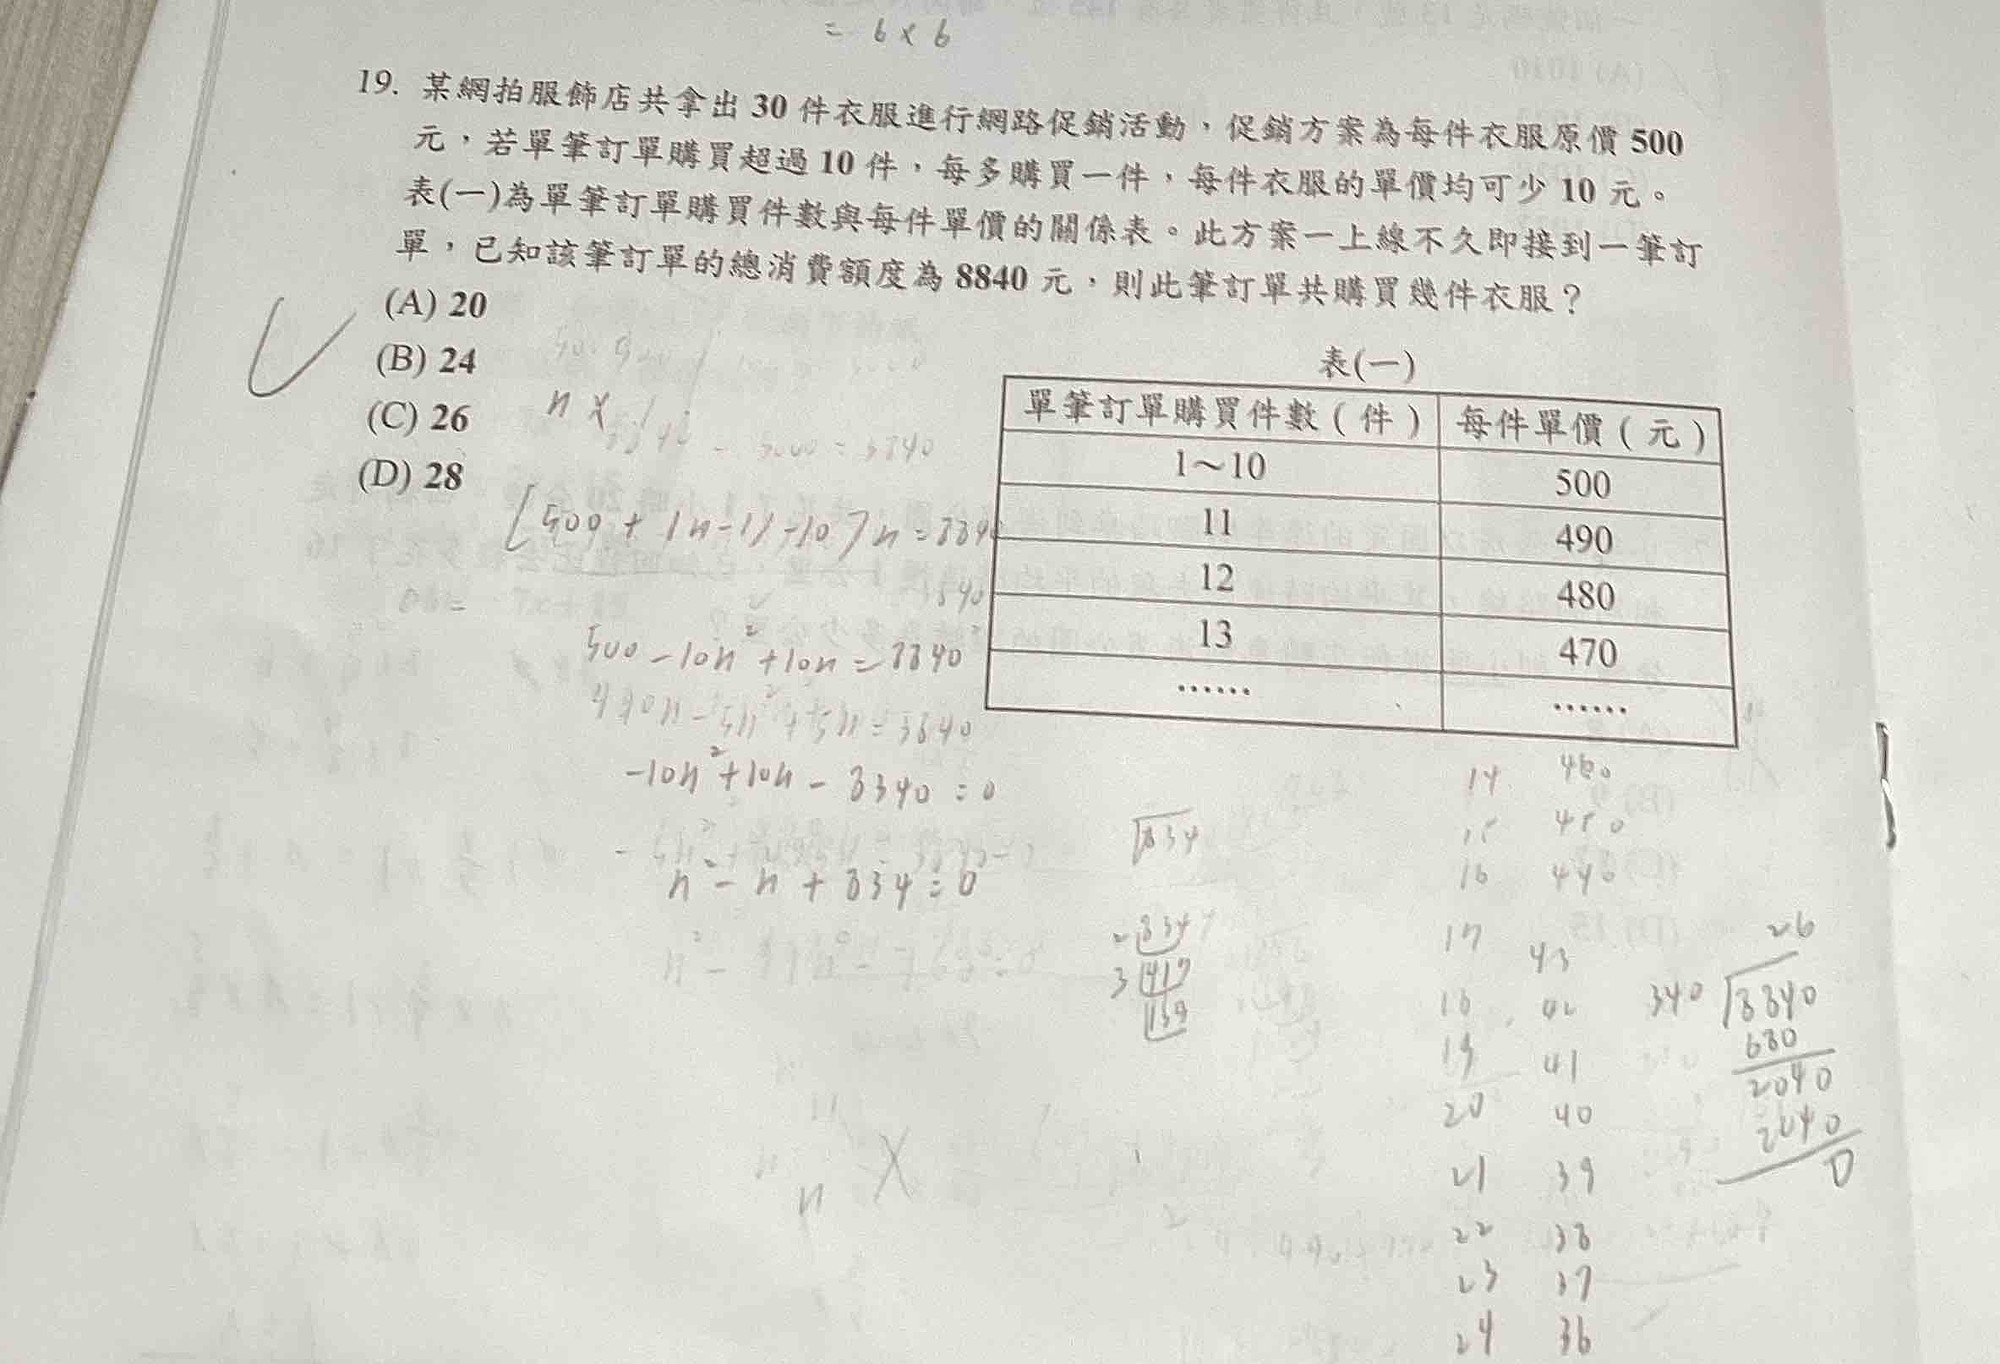 = 6 × 6
19. 某網拍服飾店共拿出 30 件衣服進行網路促銷活動，促銷方案為每件衣服原價 500
元，若單筆訂單購買超過 10 件，每多購買一件，每件衣服的單價均可少 10 元。
表(一)為單筆訂單購買件數與每件單價的關係表。此方案一上線不久即接到一筆訂
單，已知該筆訂單的總消費額度為 8840 元，則此筆訂單共購買幾件衣服？
(A) 20
(B) 24
(C) 26
(D) 28
表(一)
單筆訂單購買件數（件） 每件單價（元）
1～10 500
11 490
12 480
13 470
…… ……
n ×
- 5000 = 3840
500 - 10n² + 10n = 8840
-10n² + 10n - 8340 = 0
n² - n + 834 = 0
√834
2 834
3 417
139
14 460
15 450
16 440
17 43
18 42
19 41
20 40
21 39
22 38
23 37
24 36
26
340 8840
680
2040
2040
0
n ×